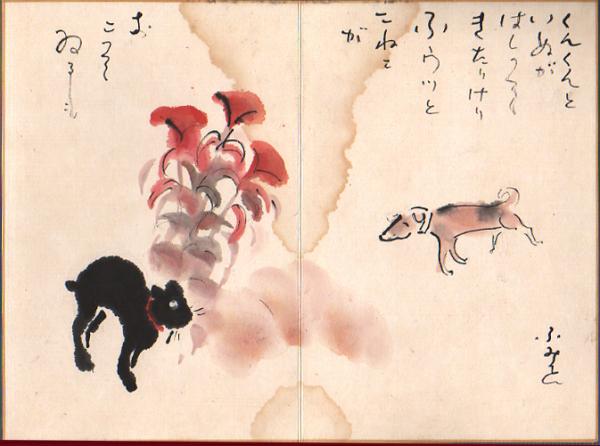 くんくんと
いぬが
はしつて
きたりけり
ふうツと
こねこ
が
お
こつて